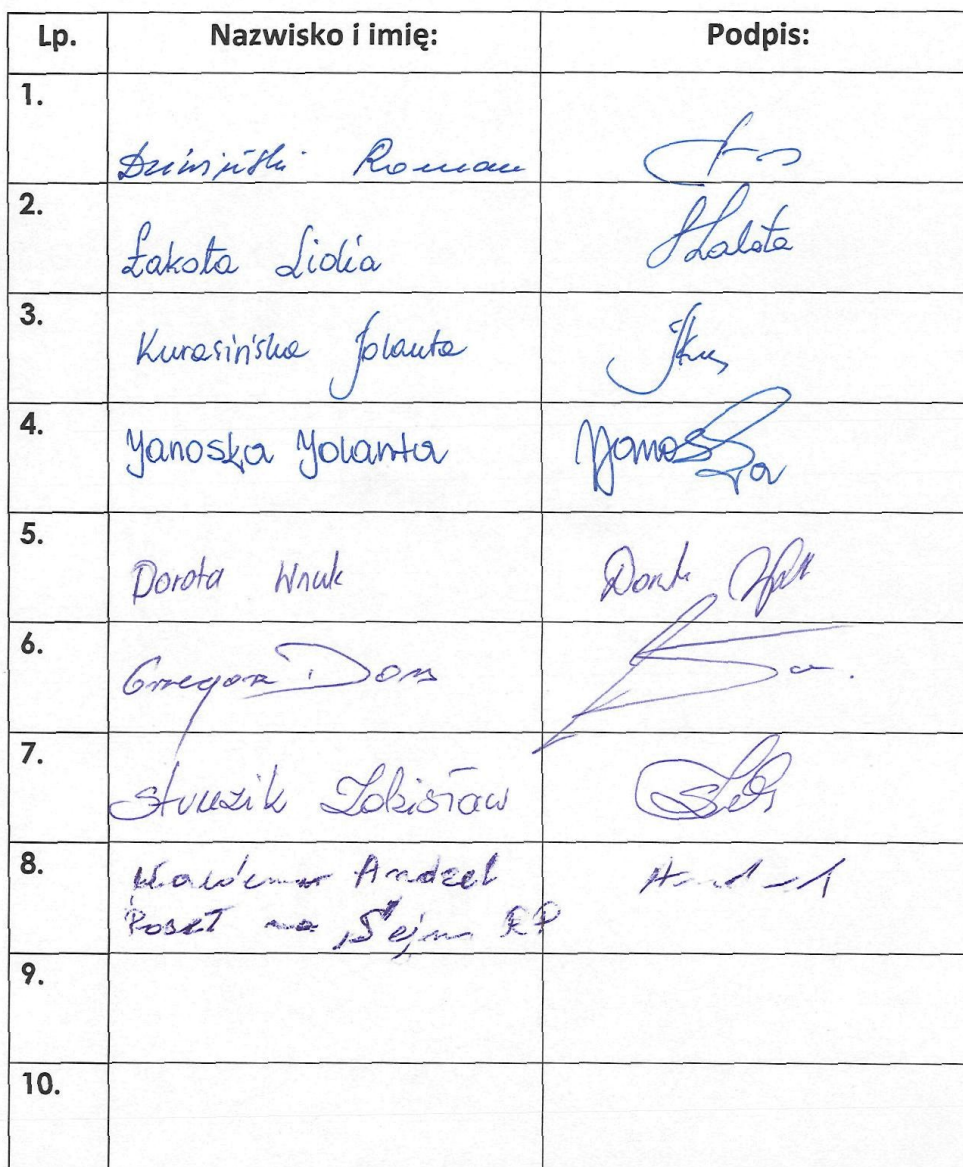 Lp. Nazwisko i imię: Podpis:
1. Roman
2. Łakota Lidia Łakota
3. Kurasińska Jolanta JKur
4. Janoska Jolanta Janoska
5. Dorota Wnuk Dorota Wnuk
6. Grzegorz Dors
7. Struzik Zdzisław
8. Waldemar Andzel Andzel
Poseł na Sejm RP
9.
10.